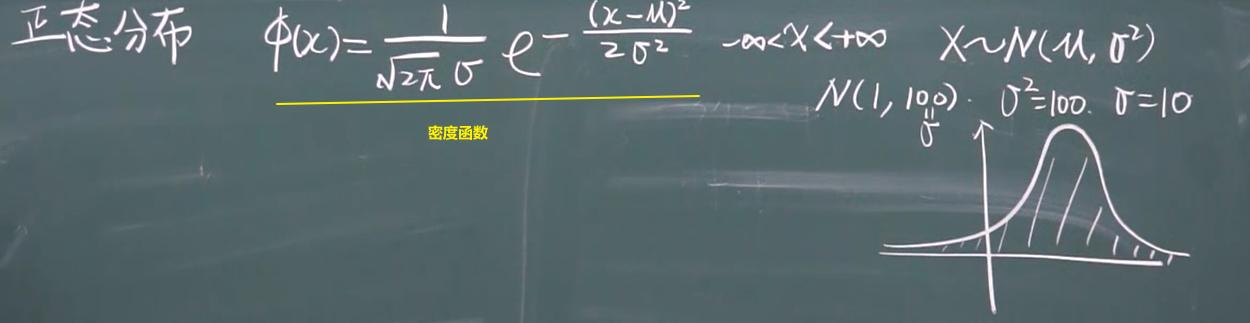 正态分布 φ(x)=1/(√2π σ) e^-(x-μ)²/2σ² -∞<x<+∞ X~N(μ,σ²)
N(1,100). σ²=100. σ=10
॥
σ
密度函数